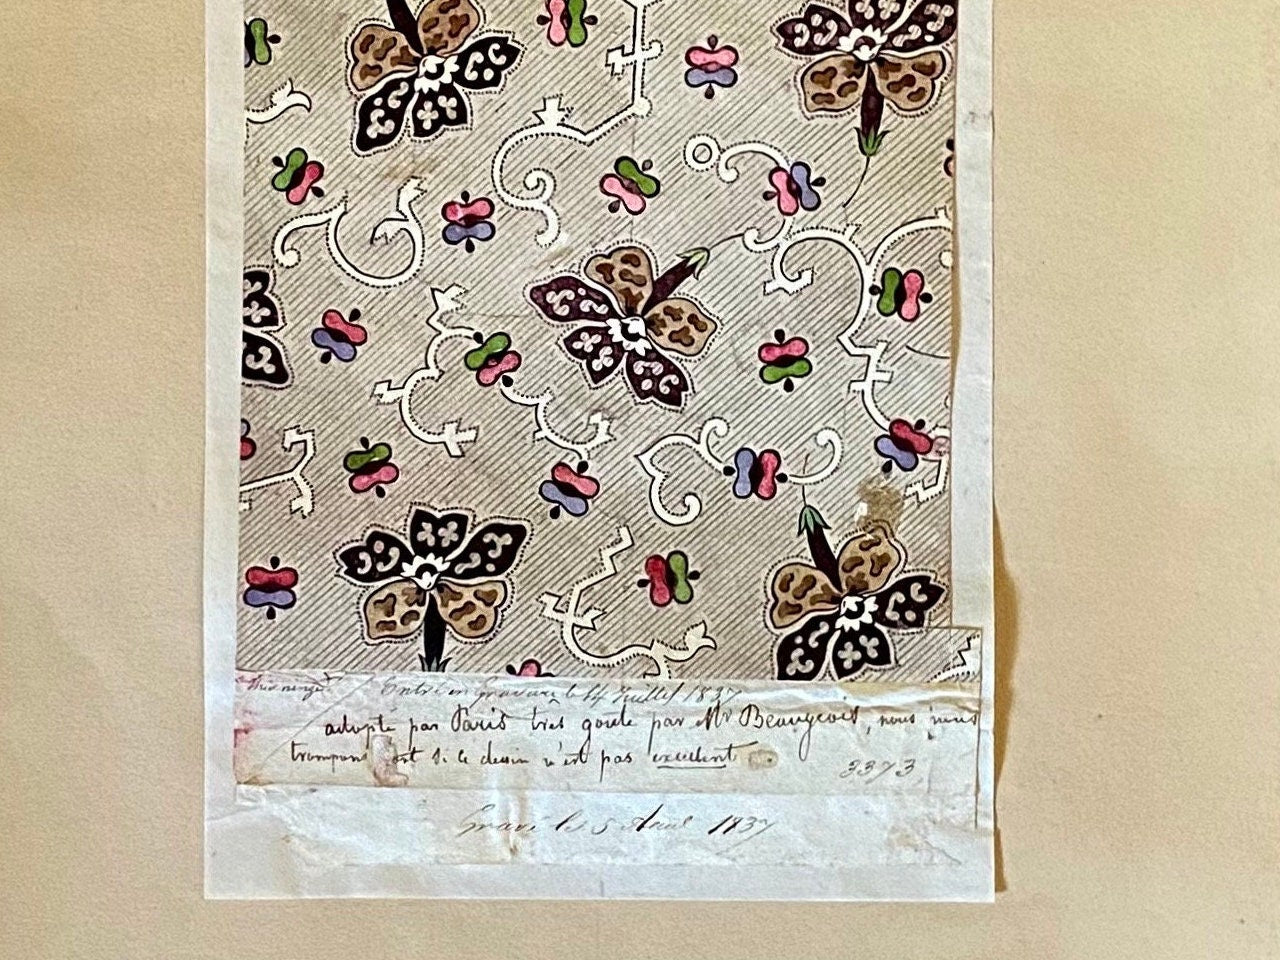 Entré en Gravure le 14 Juillet 1837
adopté par Paris très gouté par Mr Beaugeois, nous nous
trompons fort si le dessin n'est pas excellent
3373
Gravé le 5 Aout 1837